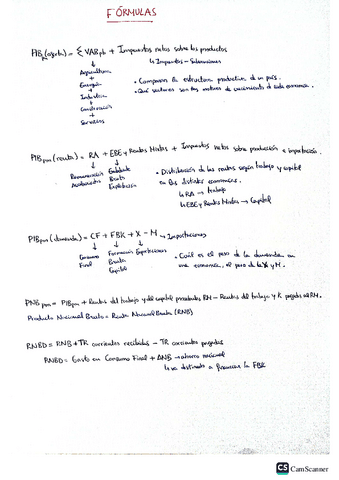 FÓRMULAS
PIBpm (oferta) = Σ VABpb + Impuestos netos sobre los productos
↓ ↳ Impuestos - Subvenciones
Agricultura
+
Energía
+
Industria
+
Construcción
+
Servicios
• Comparan la estructura productiva de un país.
• Qué sectores son los motores de crecimiento de cada economía.
PIBpm (renta) = RA + EBE y Rentas Mixtas + Impuestos netos sobre producción e importación.
↓ ↓
Remuneración Excedente
Asalariados Bruto
Explotación
• Distribución de las rentas según trabajo y capital
en las distintas economías.
↳ RA → trabajo
↳ EBE y Rentas Mixtas → Capital
PIBpm (demanda) = CF + FBK + X - M → Importaciones
↓ ↓ ↓
Consumo Formación Exportaciones
Final Bruta
Capital
• Cuál es el peso de la demanda en
una economía, el peso de la X y M.
PNBpm = PIBpm + Rentas del trabajo y del capital procedentes RM - Rentas del trabajo y K pagadas al RM.
Producto Nacional Bruto = Renta Nacional Bruta (RNB)
RNBD = RNB + TR corrientes recibidas - TR corrientes pagadas
RNBD = Gasto en Consumo Final + ANB → ahorro nacional
↳ va destinado a financiar la FBK
CS CamScanner